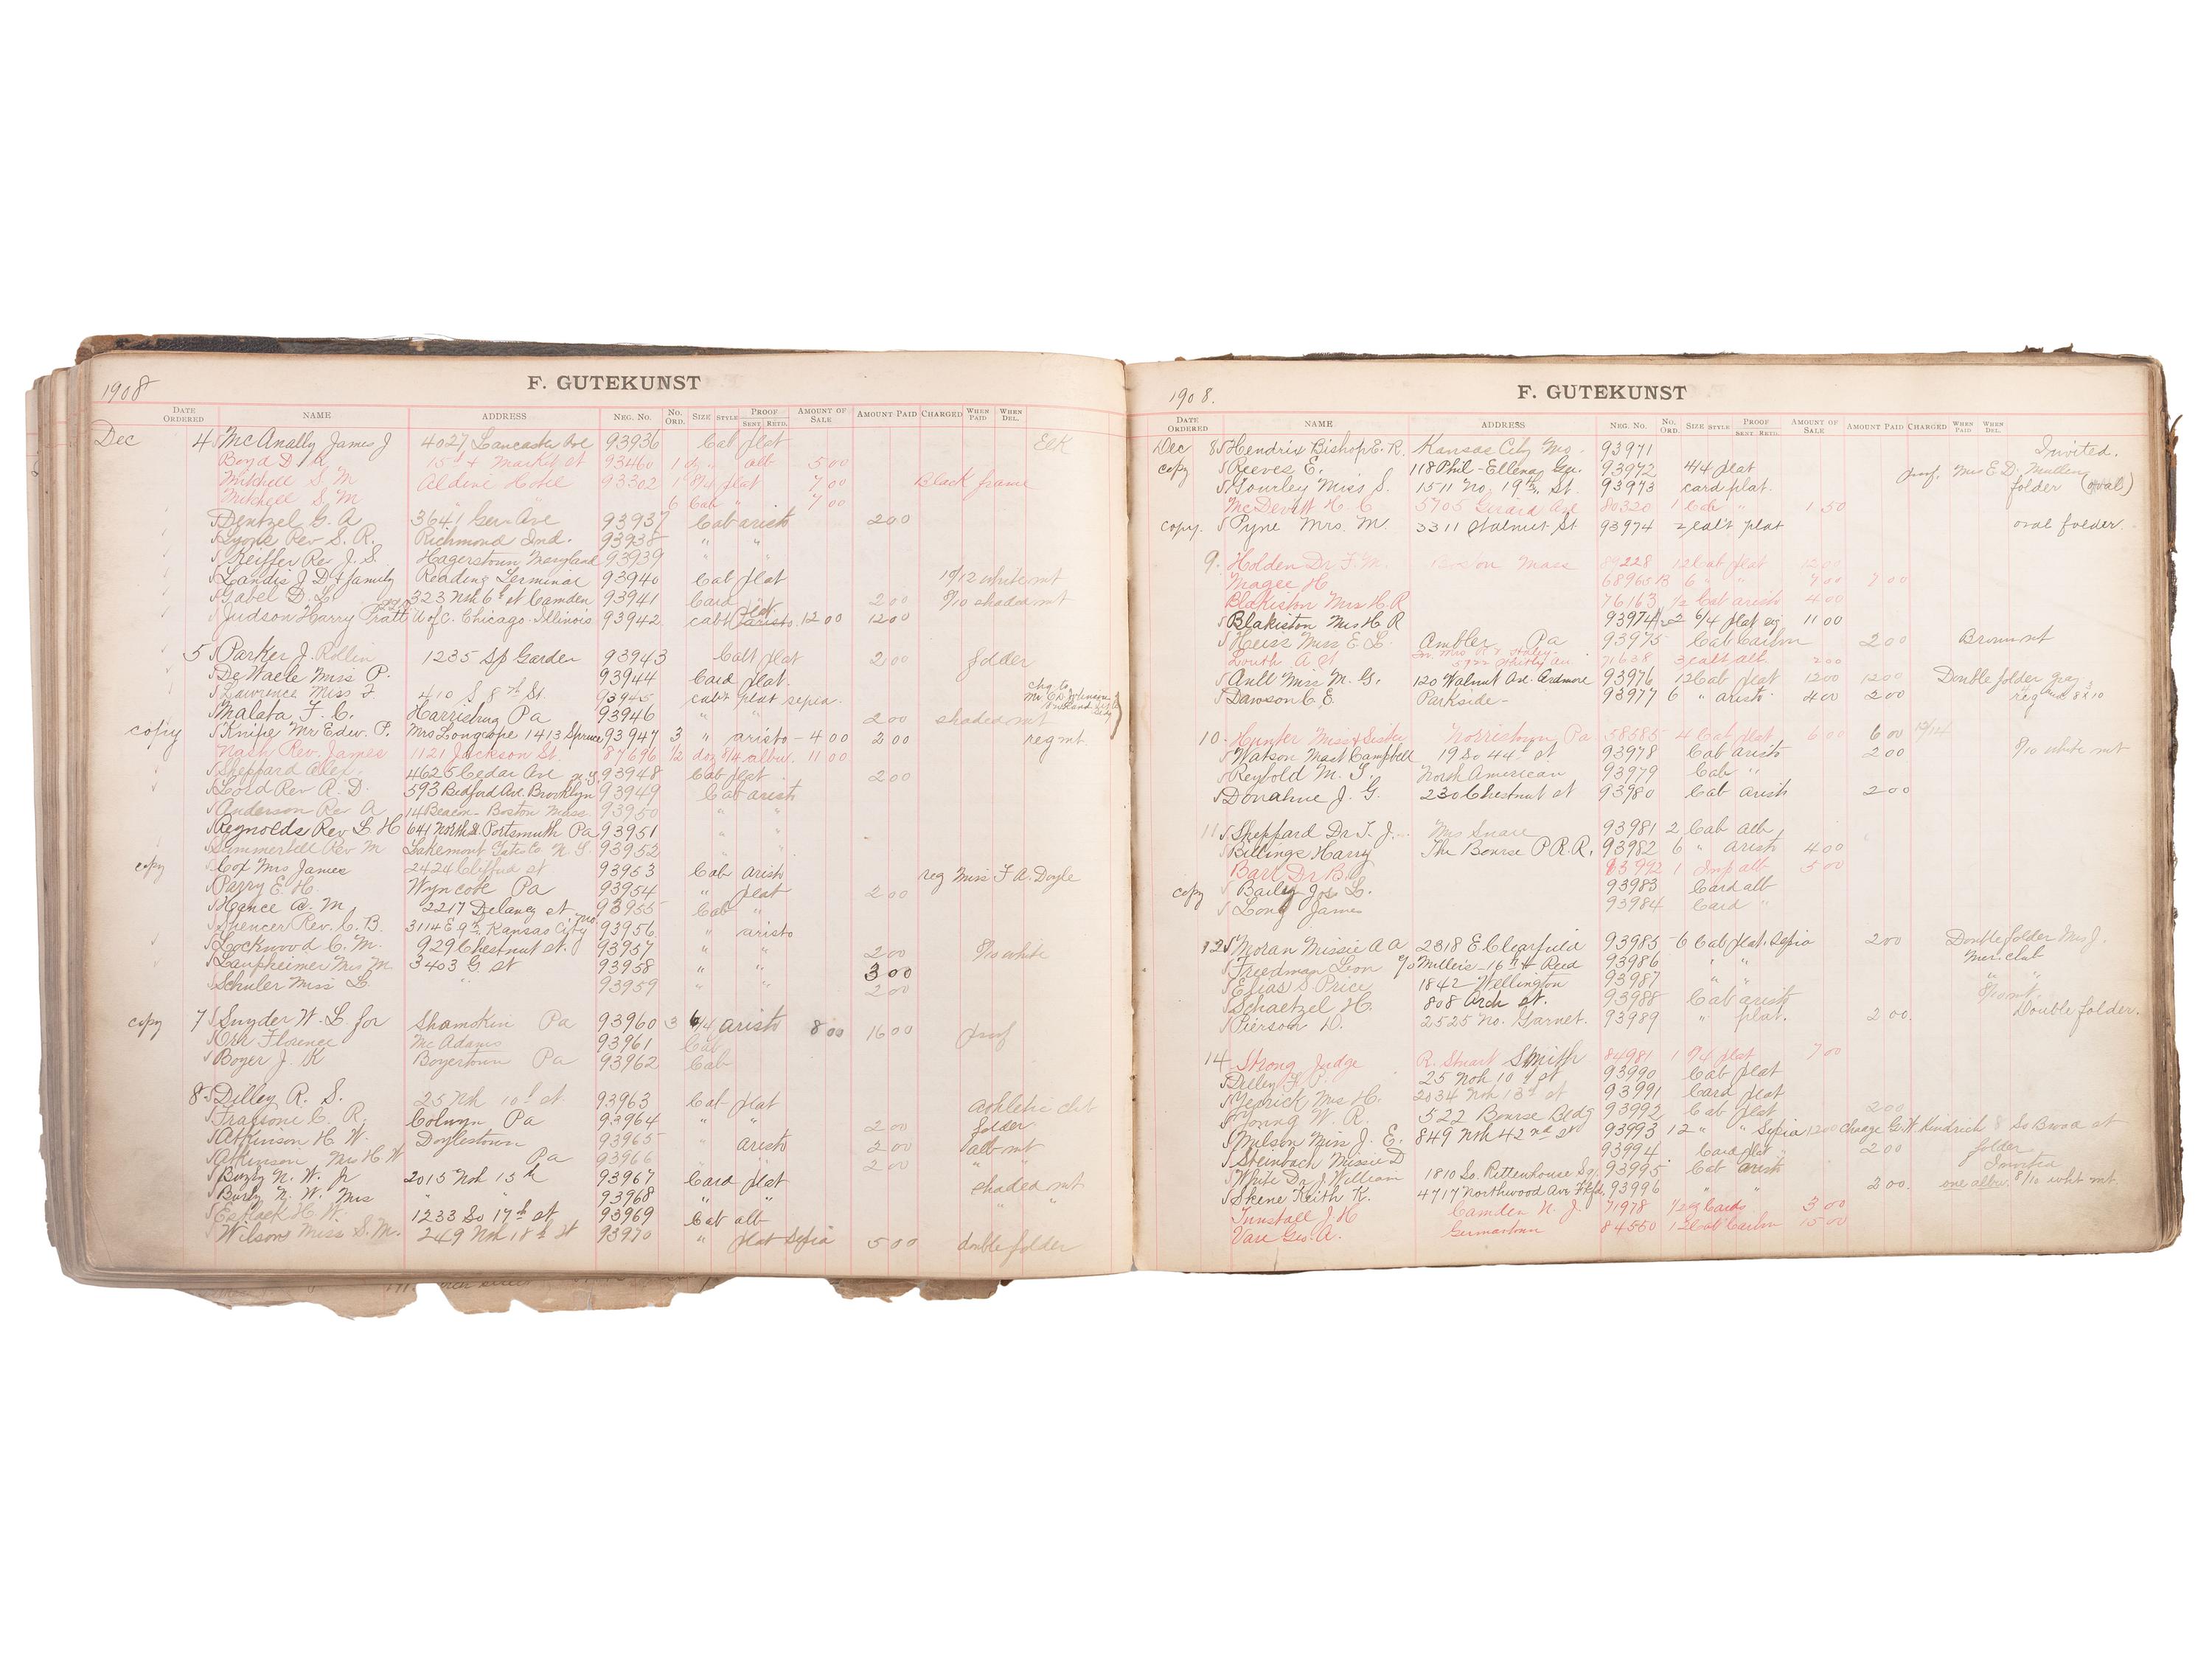 1908
F. GUTEKUNST
DATE ORDERED NAME ADDRESS NEG. NO. NO. ORD. SIZE STYLE PROOF SENT RETD. AMOUNT OF SALE AMOUNT PAID CHARGED WHEN PAID WHEN DEL.
Dec 4 McAnally James J 4027 Lancaster Ave 93936 Cab plat Elk
Boyd D R 15th & Market st 93460 1 dz " alb 5 00
Mitchell S. M Aldine Hotel 93302 1 8/4 plat 7 00 Black frame
Mitchell S. M " 6 Cab " 7 00
Dentzel G. A 3641 Ger. Ave 93937 Cab aristo 2 00
Lyons Rev S. R. Richmond Ind. 93938 " "
Keiffer Rev J. S. Hagerstown Maryland 93939 " "
Landis J D & family Reading Terminal 93940 Cab plat 10/12 white mt
Gabel D. L. 323 Nth 6th st Camden 93941 Card " 2 00 8/10 shaded mt
Judson Harry Pratt U of C. Chicago Illinois 93942 cabt plat aristo 12 00 12 00
5 Parker J. Rollin 1235 Sp Garden 93943 Cabt plat 2 00 folder
DeWaele Miss P. 93944 Card plat.
Lawrence Miss F. 410 S 8th St. 93945 cabt plat sepia chg to Mr. E. D. Johnson
Malata F. C. Harrisburg Pa 93946 " " 2 00 shaded mt
copy Knipe Mr Edw. P. Mrs Longcope 1413 Spruce 93947 3 " aristo - 4 00 2 00 reg mt.
Nash Rev. James 1121 Jackson St. 87696 1/2 doz 8/4 album. 11 00
Sheppard Alex. 4625 Cedar Ave 93948 Cab plat 2 00
Lord Rev A. D. 593 Bedford Ave. Brooklyn N.Y. 93949 Cab aristo
Anderson Rev A 14 Beacon - Boston Mass. 93950 " "
Reynolds Rev L H 641 North St. Portsmouth Pa 93951 " "
Summerbell Rev M Lakemont Yates Co N. Y. 93952 " "
copy Cox Mrs James 2424 Clifford st 93953 Cab aristo reg Miss F A. Doyle
Parry E. H. Wyncote Pa 93954 " plat 2 00
Hance A. M. 2217 Delancy st 93955 Cab "
Spencer Rev. C. B. 3114 E 9th Kansas City Mo. 93956 " aristo
Lockwood C. M. 929 Chestnut st. 93957 " " 2 00 8/10 white
Laupheimer Mrs M. 3403 G st 93958 " " 3 00
Schuler Miss L. " 93959 " " 2 00
copy 7 Snyder W. L. for Shamokin Pa 93960 3 6/4 aristo 8 00 16 00 proof
Orr Florence McAdams 93961 Cab
Boyer J. K Boyertown Pa 93962 Cab
8 Dilley R. S. 25 Nth 10th st. 93963 Cab plat athletic clet
Frassoni C. R. Colwyn Pa 93964 " " 2 00 folder
Atkinson H. W. Doylestown 93965 " aristo 2 00 alb mt
Atkinson Mrs H W " Pa 93966 " " 2 00 " "
Buzby N. W. Jr 2015 Nth 13th 93967 Card plat shaded mt
Buzby N. W. Mrs " " 93968 " " "
Eaplack H. W. 1233 So 17th st 93969 Cab alb
Wilson Miss S. M. 249 Nth 18th st 93970 " plat Sepia 5 00 double folder
1908.
F. GUTEKUNST
DATE ORDERED NAME ADDRESS NEG. NO. NO. ORD. SIZE STYLE PROOF SENT RETD. AMOUNT OF SALE AMOUNT PAID CHARGED WHEN PAID WHEN DEL.
Dec 8 Hendrix Bishop E. R. Kansas City Mo. 93971 Invited.
copy Reeves E. 118 Phil-Ellena Ger. 93972 4/4 plat proof. Miss E D. Mullen
Gourley Miss S. 1511 No. 19th St. 93973 card plat. folder (oval)
McDevitt H. C 5705 Girard Ave 80320 1 Cab " 1 50
copy. Pyne Mrs. M. 3311 Walnut St 93974 2 cabt plat oval folder.
9. Holden Dr. F. M. Boston Mass 89228 12 Cab plat 12 00
Magee H 68965 B 6 " " 7 00 7 00
Blakiston Mrs H. R 76163 1/2 Cab aristo 4 00
Blakiston Mrs H R 93974 1/2 2 6/4 plat eg 11 00
Heiss Miss E L. Ambler Pa 93975 Cab Carbon 2 00 Brown mt
Louth A. H 71638 3 cabt alb. 2 00
Aull Miss M. G. 120 Walnut Ave. Ardmore 93976 12 Cab plat 12 00 12 00 Double folder gray
Dawson C. E. Parkside - 93977 6 " aristo 4 00 2 00 reg and 8 x 10
10. Hunter Miss & Sister Norristown, Pa 58585 4 Cab plat 6 00 6 00 12/14
Watson Mast Campbell 19 So 44th st 93978 Cab aristo 2 00 8/10 white mt
Reybold M. T. North American 93979 Cab "
Donahue J. G. 230 Chestnut st 93980 Cab aristo 2 00
11 Sheppard Dr T. J. Mrs Snare 93981 2 Cab alb
Billings Harry The Bourse P.R.R. 93982 6 " aristo 4 00
Bart Dr B. 83992 1 Imp alb 5 00
copy Baily Jos L. 93983 Card alb
Long James 93984 Card "
12 Moran Missie A A 2318 E. Clearfield 93985 6 Cab plat. Sepia 2 00 Double folder Mrs J.
Freedman Leon % Millers - 16th & Reed 93986 " " Mer. club
Elias S. Price 1842 Wellington 93987 " " "
Schaetzel H. 808 Arch st. 93988 Cab aristo 8/10 mt
Pierson D. 2525 No. Garnet. 93989 " plat. 2 00. Double folder.
14 Strong Judge R. Stuart Smith 84981 1 8/4 plat 7 00
Dilley 25 Nth 10th st 93990 Cab plat
Yerrick Mrs H. 2034 Nth 13th st 93991 Card plat
Young W. R. 522 Bourse Bldg 93992 Cab plat 2 00
Wilson Miss J. E. 849 Nth 42nd st 93993 12 " " Sepia 12 00 charge G. W. Kindrick 8 So Broad st
Steinbach Missie D 93994 Card plat 2 00 folder
White Dr J. William 1810 So. Rittenhouse Sq. 93995 Cab aristo Invited
Skene Keith K. 4717 Northwood Ave Fkfd. 93996 " " 2 00. one album. 8/10 wht mt
Tunstall J. H Camden N. J. 71978 1/2 dz Cards 3 00
Vare Geo. A. Germantown 84550 12 Cab Carbon 15 00